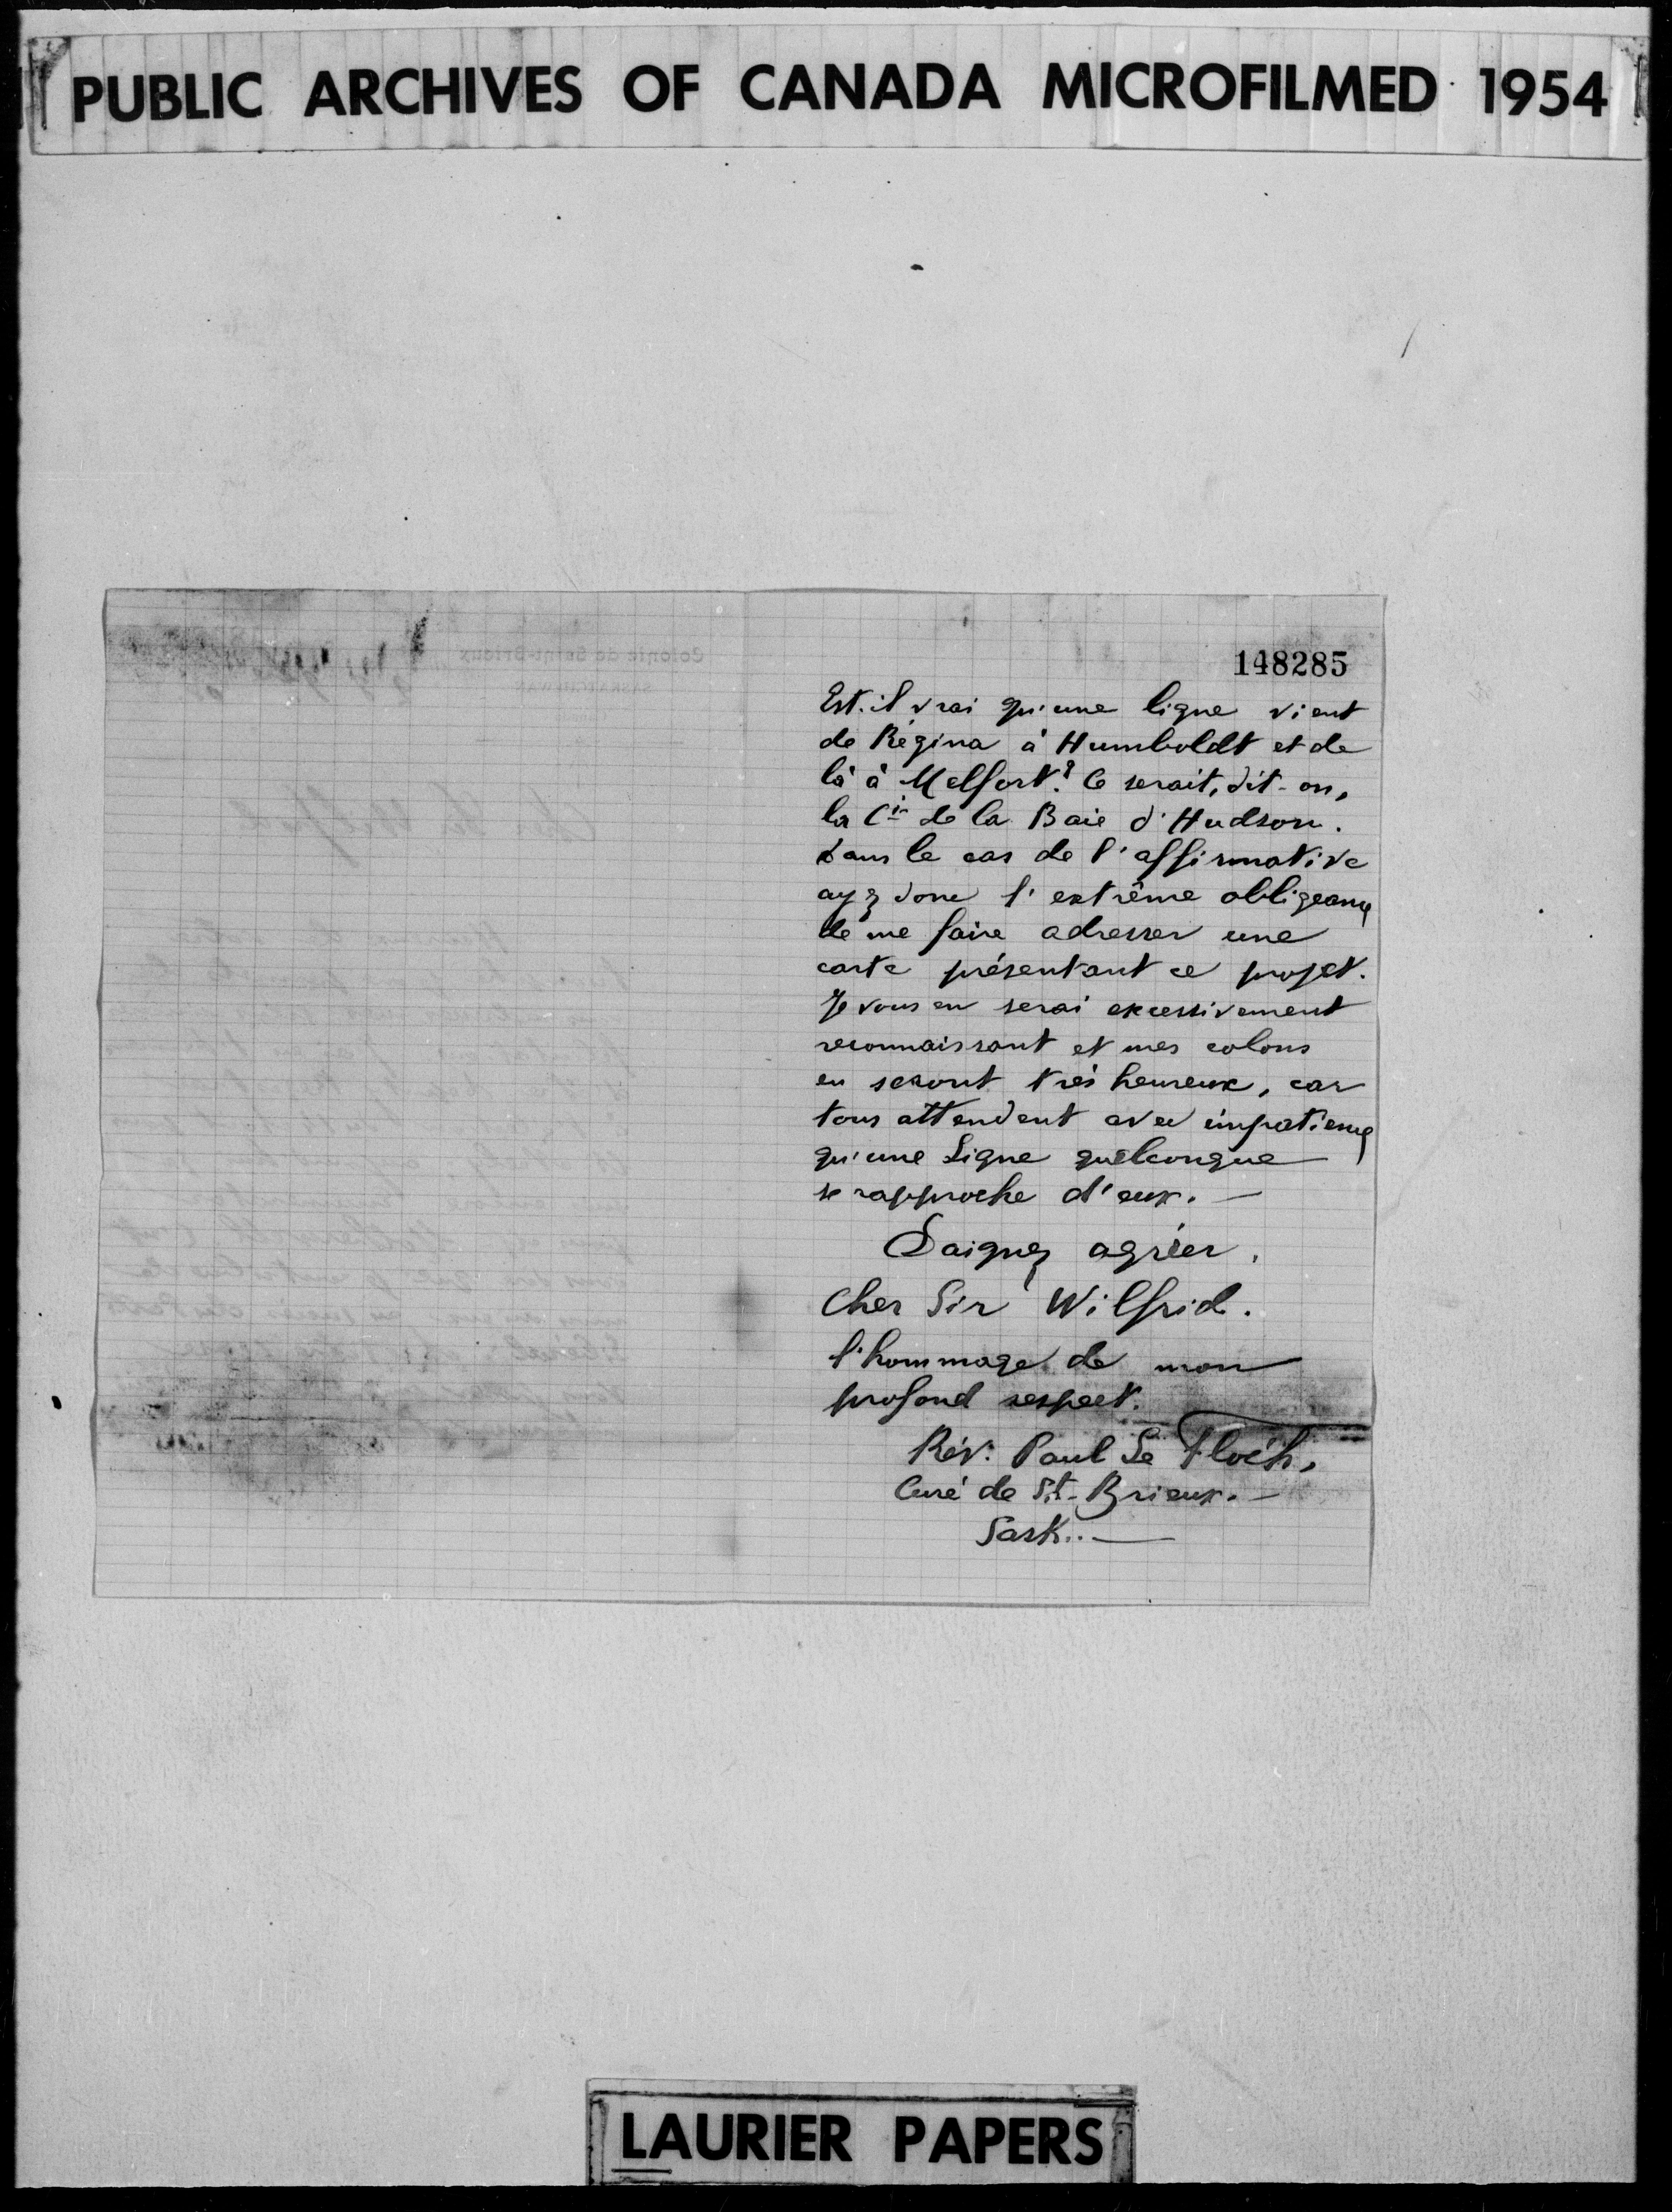 PUBLIC ARCHIVES OF CANADA MICROFILMED 1954
Colonie de Saint-Brieux
SASKATCHEWAN
148285
Est-il vrai qu'une ligne vient
de Régina à Humboldt et de
là à Melfort? Ce serait, dit-on,
la Cie de la Baie d'Hudson.
Dans le cas de l'affirmative
ayez donc l'extrême obligeance
de me faire adresser une
carte présentant ce projet.
Je vous en serai excessivement
reconnaissant et mes colons
en seront très heureux, car
tous attendent avec impatience
qu'une Ligne quelconque
se rapproche d'eux. —
Daignez agréer,
Cher Sir Wilfrid.
l'hommage de mon
profond respect.
Rév. Paul Le Floc'h,
Curé de St-Brieux. —
Sask.. —
LAURIER PAPERS